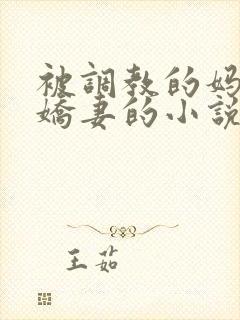 被調教的妈
嬌妻的小説
王茹